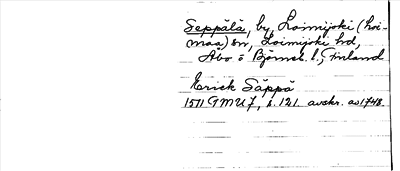 Seppälä, by, Loimijoki (Loi-
maa) sn, Loimijoki hd,
Åbo o Björneb. l., Finland
Erick Säppä
1571 GMU7, s. 121. avskr. av 1748.